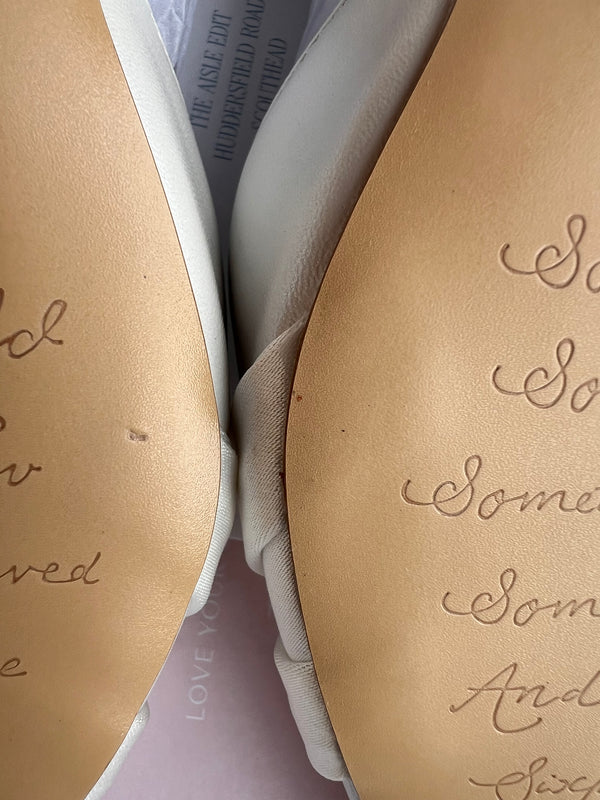 THE AISLE EDIT
HUDDERSFIELD ROAD
SCOUTHEAD
ld
w
wed
e
So
So
Some
Som
And
Sixp
LOVE YOU